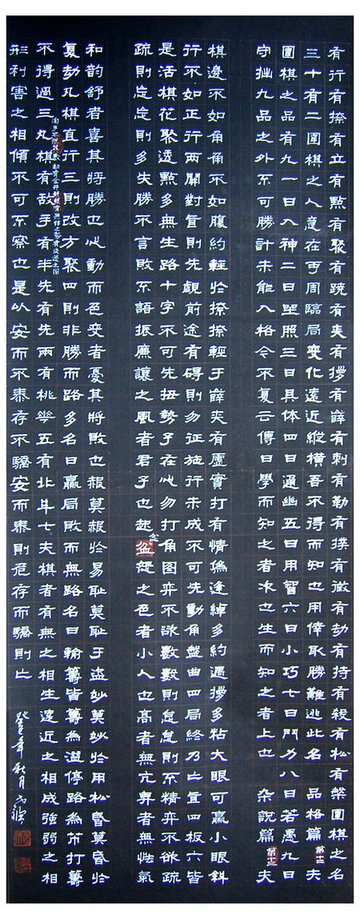 有行有捺有立有點有聚有蹺有夾有拶有薜有刺有勒有撲有徵有劫有持有殺有松有槃圍棋之名
三十有二圍棋之人意在可周臨局變化遠近縱橫吾不得而知也用倖取勝難逃此名 品格篇第十二 夫
圍棋之品有九一曰入神二曰坐照三曰具體四曰通幽五曰用智六曰小巧七曰鬥力八曰若愚九曰
守拙九品之外不可勝計未能入格今不復云傳曰學而知之者次也生而知之者上也 雜說篇第十三 夫
棋邊不如角角不如腹約輕於捺捺輕于薜夾有虛實打有情偽逢綽多約遇拶多粘大眼可贏小眼斜
行不如正行兩關對直則先覷前途有礙則勿征施行未成不可先動角盤曲四局終乃亡直四板六皆
是活棋花聚透點多無生路十字不可先扭勢子在心勿打角圖弈不欲數數則怠怠則不精弈不欲疏
疏則忘忘則多失勝不言敗不語振廉讓之風者君子也起忿之色者小人也高者無亢卑者無怯氣
和韵舒者喜其將勝也心動而色变者憂其將敗也赧莫赧於易恥莫恥于盜妙莫妙於用松昏莫昏於
复劫凡棋直行三則改方聚四則非勝而路多名曰贏局敗而無路名曰輸籌皆籌為溢停路為芇打籌
不得過三凡棋有敵手有半先有先兩有桃花五有北斗七夫棋者有無之相生遠近之相成強弱之相
形利害之相傾不可不察也是以安而不泰存不驕安而泰則危存而驕則亡
年秋月